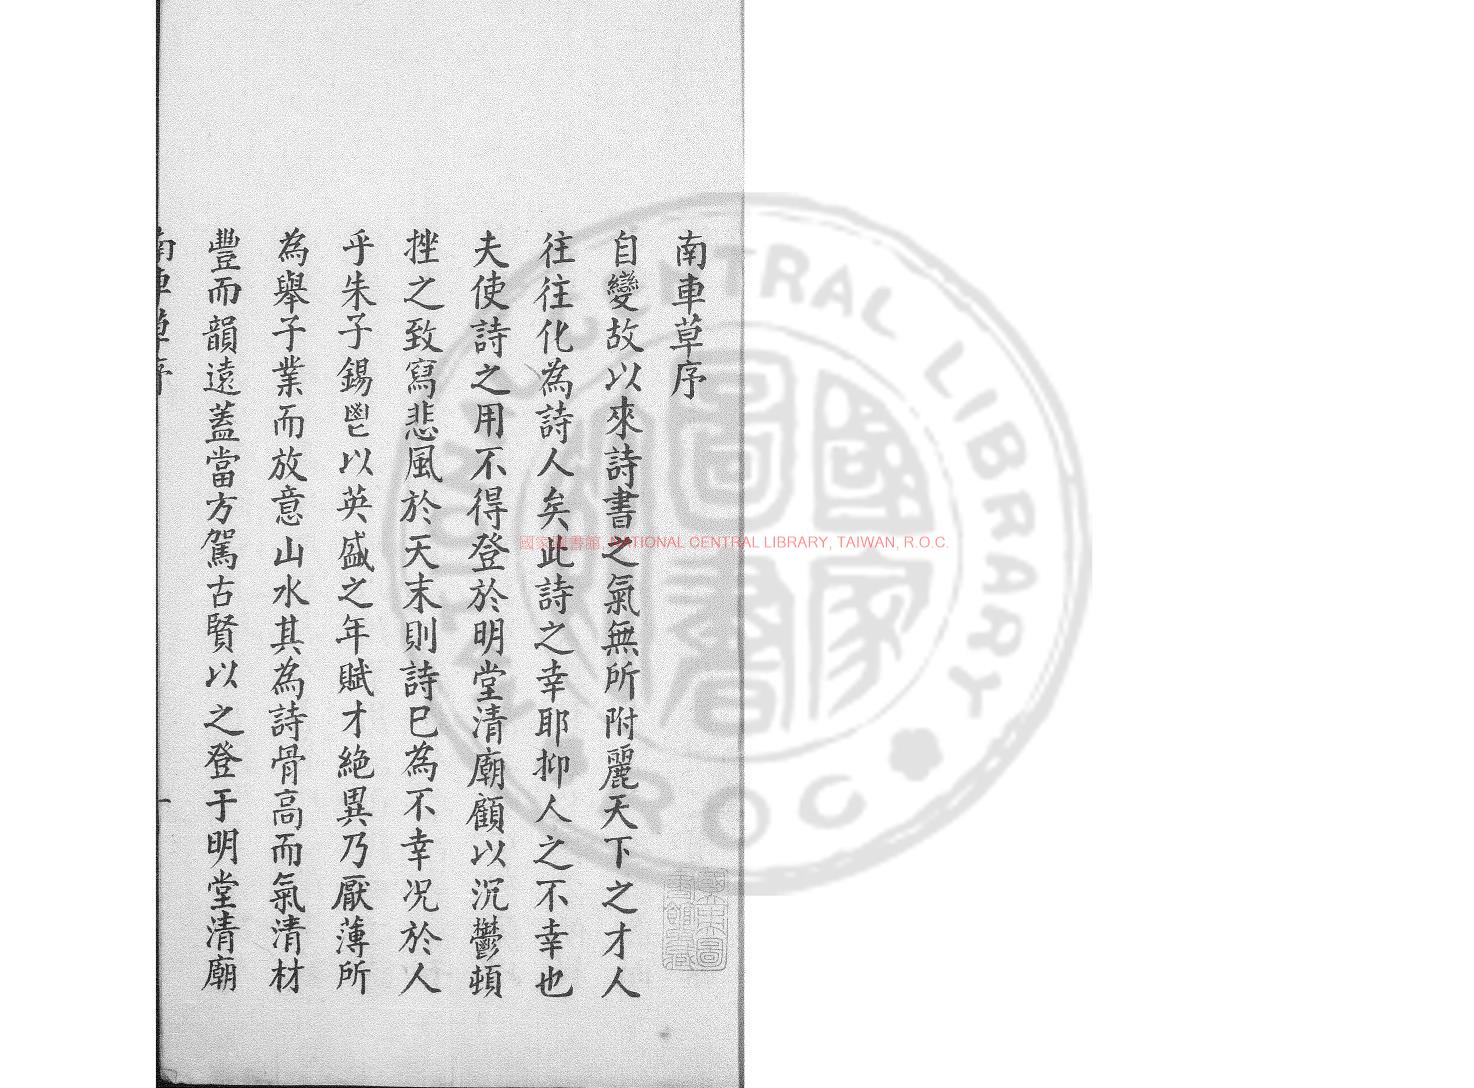 南車草序
自變故以來詩書之氣無所附麗天下之才人
往往化為詩人矣此詩之幸耶抑人之不幸也
夫使詩之用不得登於明堂清廟顧以沉鬱頓
挫之致寫悲風於天末則詩已為不幸况於人
乎朱子錫鬯以英盛之年賦才絶異乃厭薄所
為舉子業而放意山水其為詩骨高而氣清材
豐而韻遠蓋當方駕古賢以之登于明堂清廟
南車草序
一
國家圖書館 NATIONAL CENTRAL LIBRARY, TAIWAN, R.O.C.
NATIONAL CENTRAL LIBRARY
ROC
國家圖書
國家圖書館藏